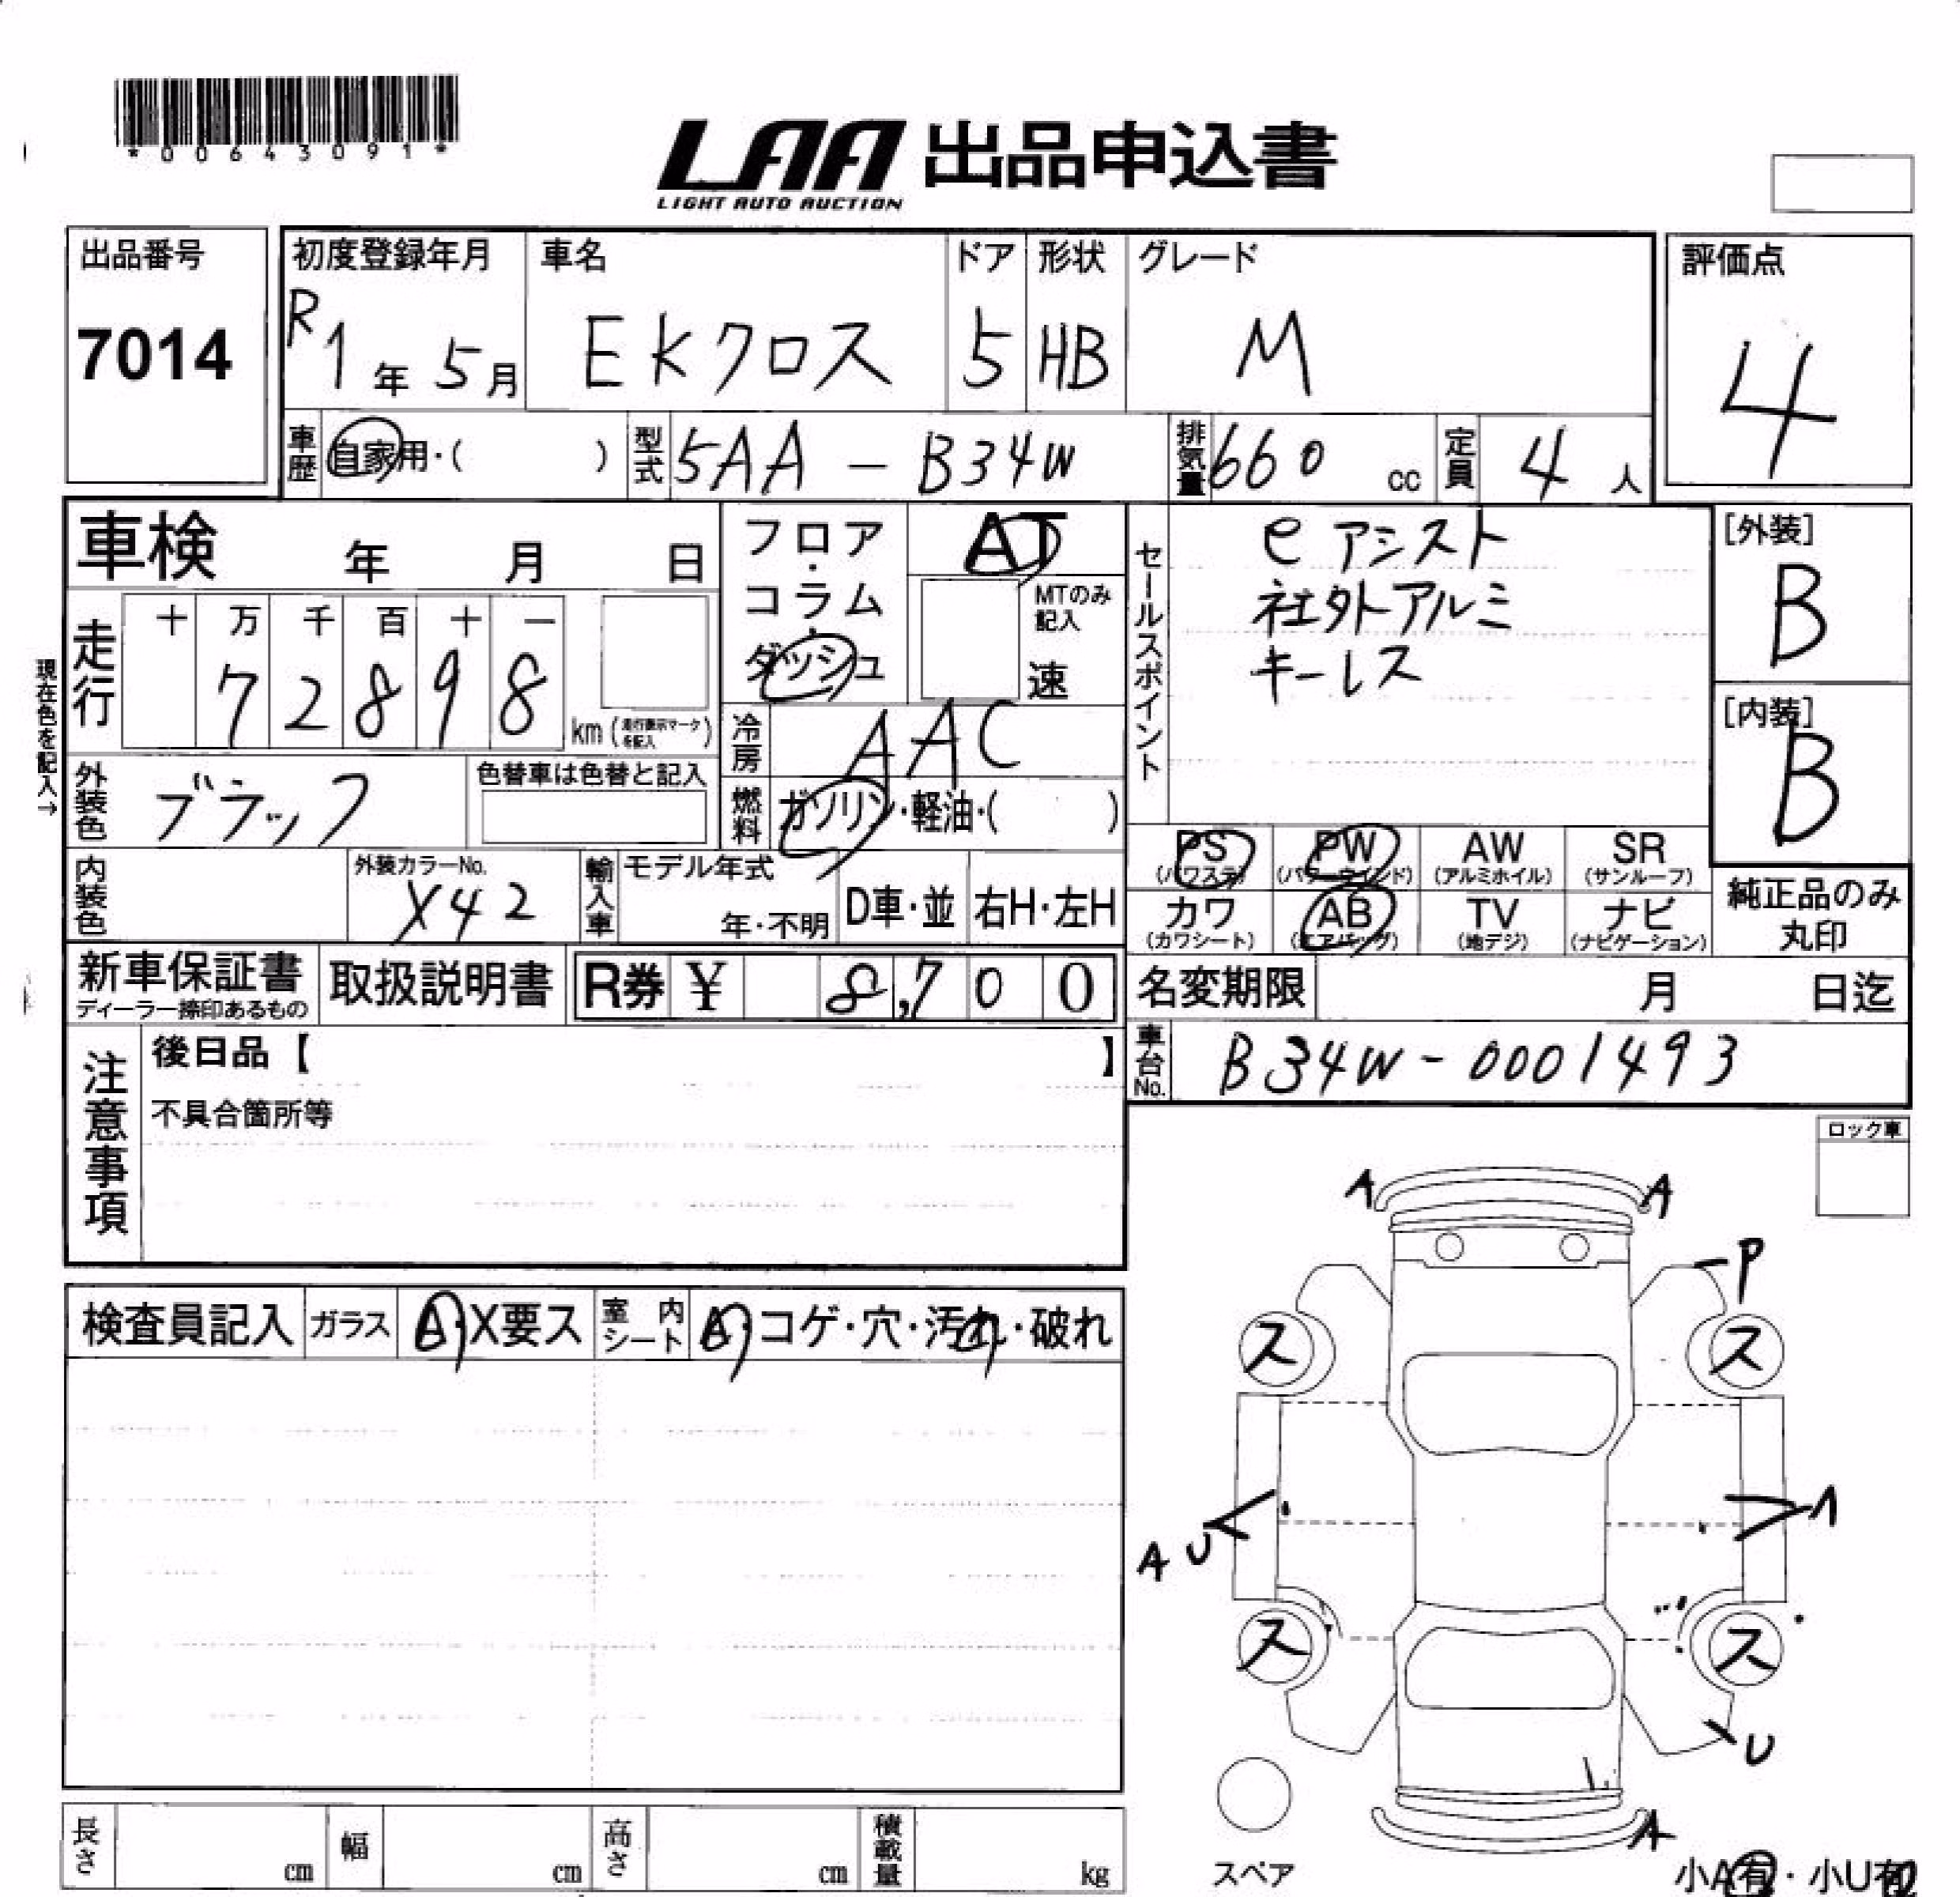 *00643091*
LAA 出品申込書
LIGHT AUTO AUCTION
出品番号
7014
初度登録年月
R1年 5月
車名
EKクロス
ドア
5
形状
HB
グレード
M
評価点
4
車歴
自家用・( )
型式
5AA - B34W
排気量
660 cc
定員
4 人
車検 年 月 日
フロア・コラム・ダッシュ
AT
MTのみ記入
速
セールスポイント
eアシスト
社外アルミ
キーレス
[外装]
B
[内装]
B
現在色を記入→
走行
十 万 千 百 十 一
7 2 8 9 8
km (走行表示マークを記入)
冷房
AAC
外装色
ブラック
色替車は色替と記入
燃料
ガソリン・軽油・( )
PS (パワステ)
PW (パワーウインド)
AW (アルミホイル)
SR (サンルーフ)
カワ (カワシート)
AB (エアバッグ)
TV (地デジ)
ナビ (ナビゲーション)
純正品のみ丸印
内装色
外装カラーNo.
X42
輸入車
モデル年式
年・不明
D車・並
右H・左H
新車保証書
ディーラー捺印あるもの
取扱説明書
R券 ¥ 8,700
名変期限 月 日迄
車台No.
B34W-0001493
注意事項
後日品【 】
不具合箇所等
ロック車
検査員記入
ガラス
A・X要ス
室内シート
A・コゲ・穴・汚れ・破れ
A A
P
ス ス
A U
A
ス ス
U
A
スペア
小A有・小U有
長さ cm
幅 cm
高さ cm
積載量 kg